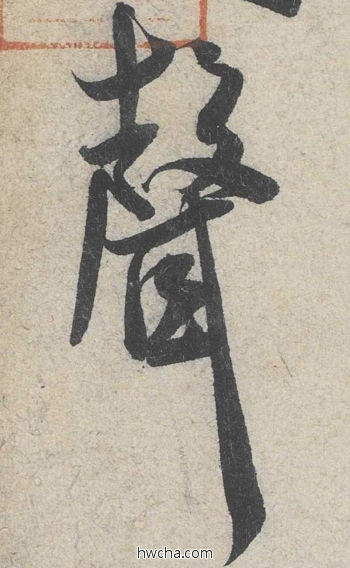 聲
hwcha.com